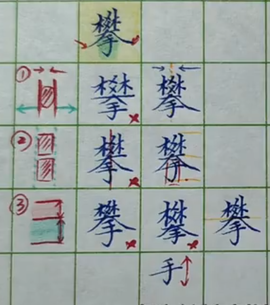 攀
① 攀 攀
② 攀 攀
③ 攀 攀 攀
手